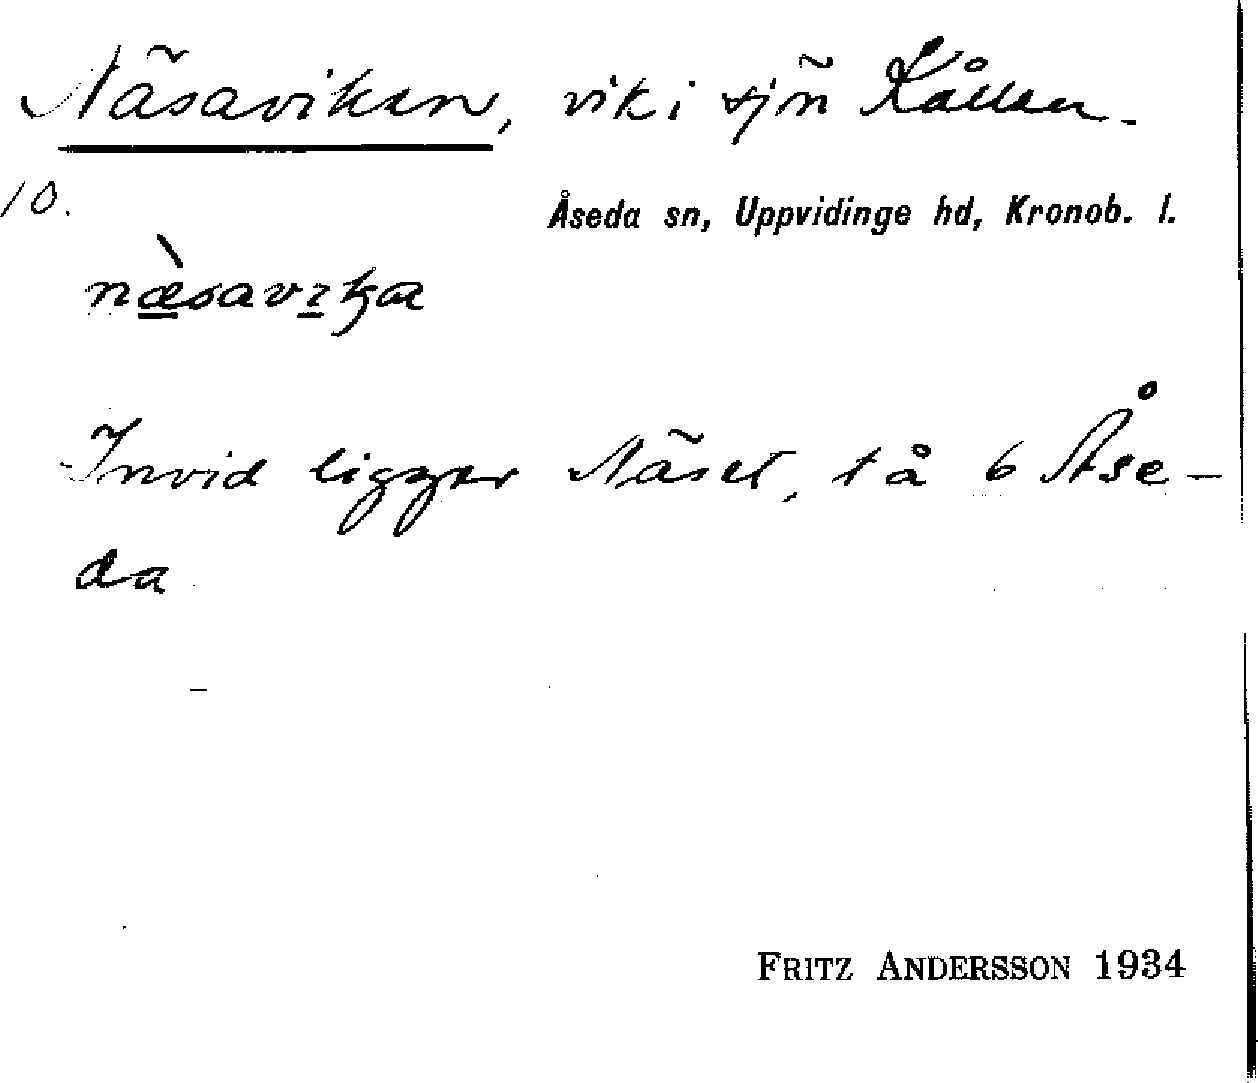 Näsaviken, vik i sjön Kållen.
10.
Åseda sn, Uppvidinge hd, Kronob. l.
Invid ligger Näset, tå 6 Åse-
da
FRITZ ANDERSSON 1934